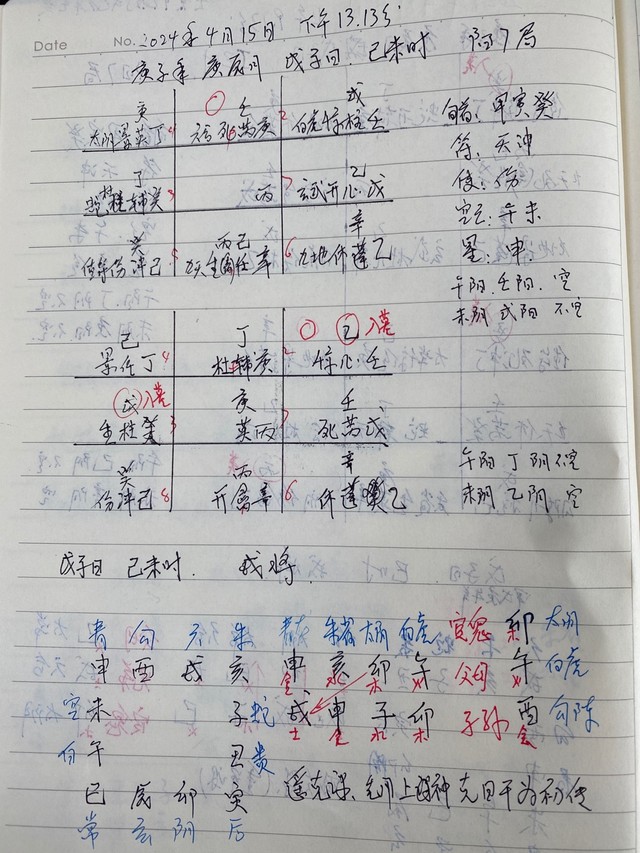 Date No. 2024年4月15日 下午13.13分
庚子年 庚辰月 戊子日 己未时 阳7局
庚 壬 戊
太阴景英丁 4 六合死芮庚 2 白虎惊柱壬
旬首: 甲寅癸
符: 天冲
丁 乙
杜辅癸 3 丙 7 玄武开心戊
使: 伤
空亡: 午未
癸 丙己 辛
伤冲己 8 九天生任辛 6 九地休蓬乙
星: 申
午阳 壬阳. 空
未阴 戊阳 不空
己 丁 己 入墓
景任丁 4 杜辅庚 2 惊心壬
戊 入墓 庚 壬
生柱癸 3 英丙 7 死芮戊
癸 丙 辛
伤冲己 8 开禽辛 6 休蓬乙
午阳 丁阴 不空
未阴 乙阴 空
戊子日 己未时. 戌将.
青 勾 六 朱 朱雀 太阴 白虎 官鬼 卯 太阴
申 酉 戌 亥 申 亥 卯 午 父母 午 白虎
金 木
空 未 子 蛇 戌 申 子 卯 子孙 酉 勾陈
土 金 水 木 金
白 午 丑 贵
巳 辰 卯 寅 遥克课、先用上神克日干为初传
常 玄 阴 后